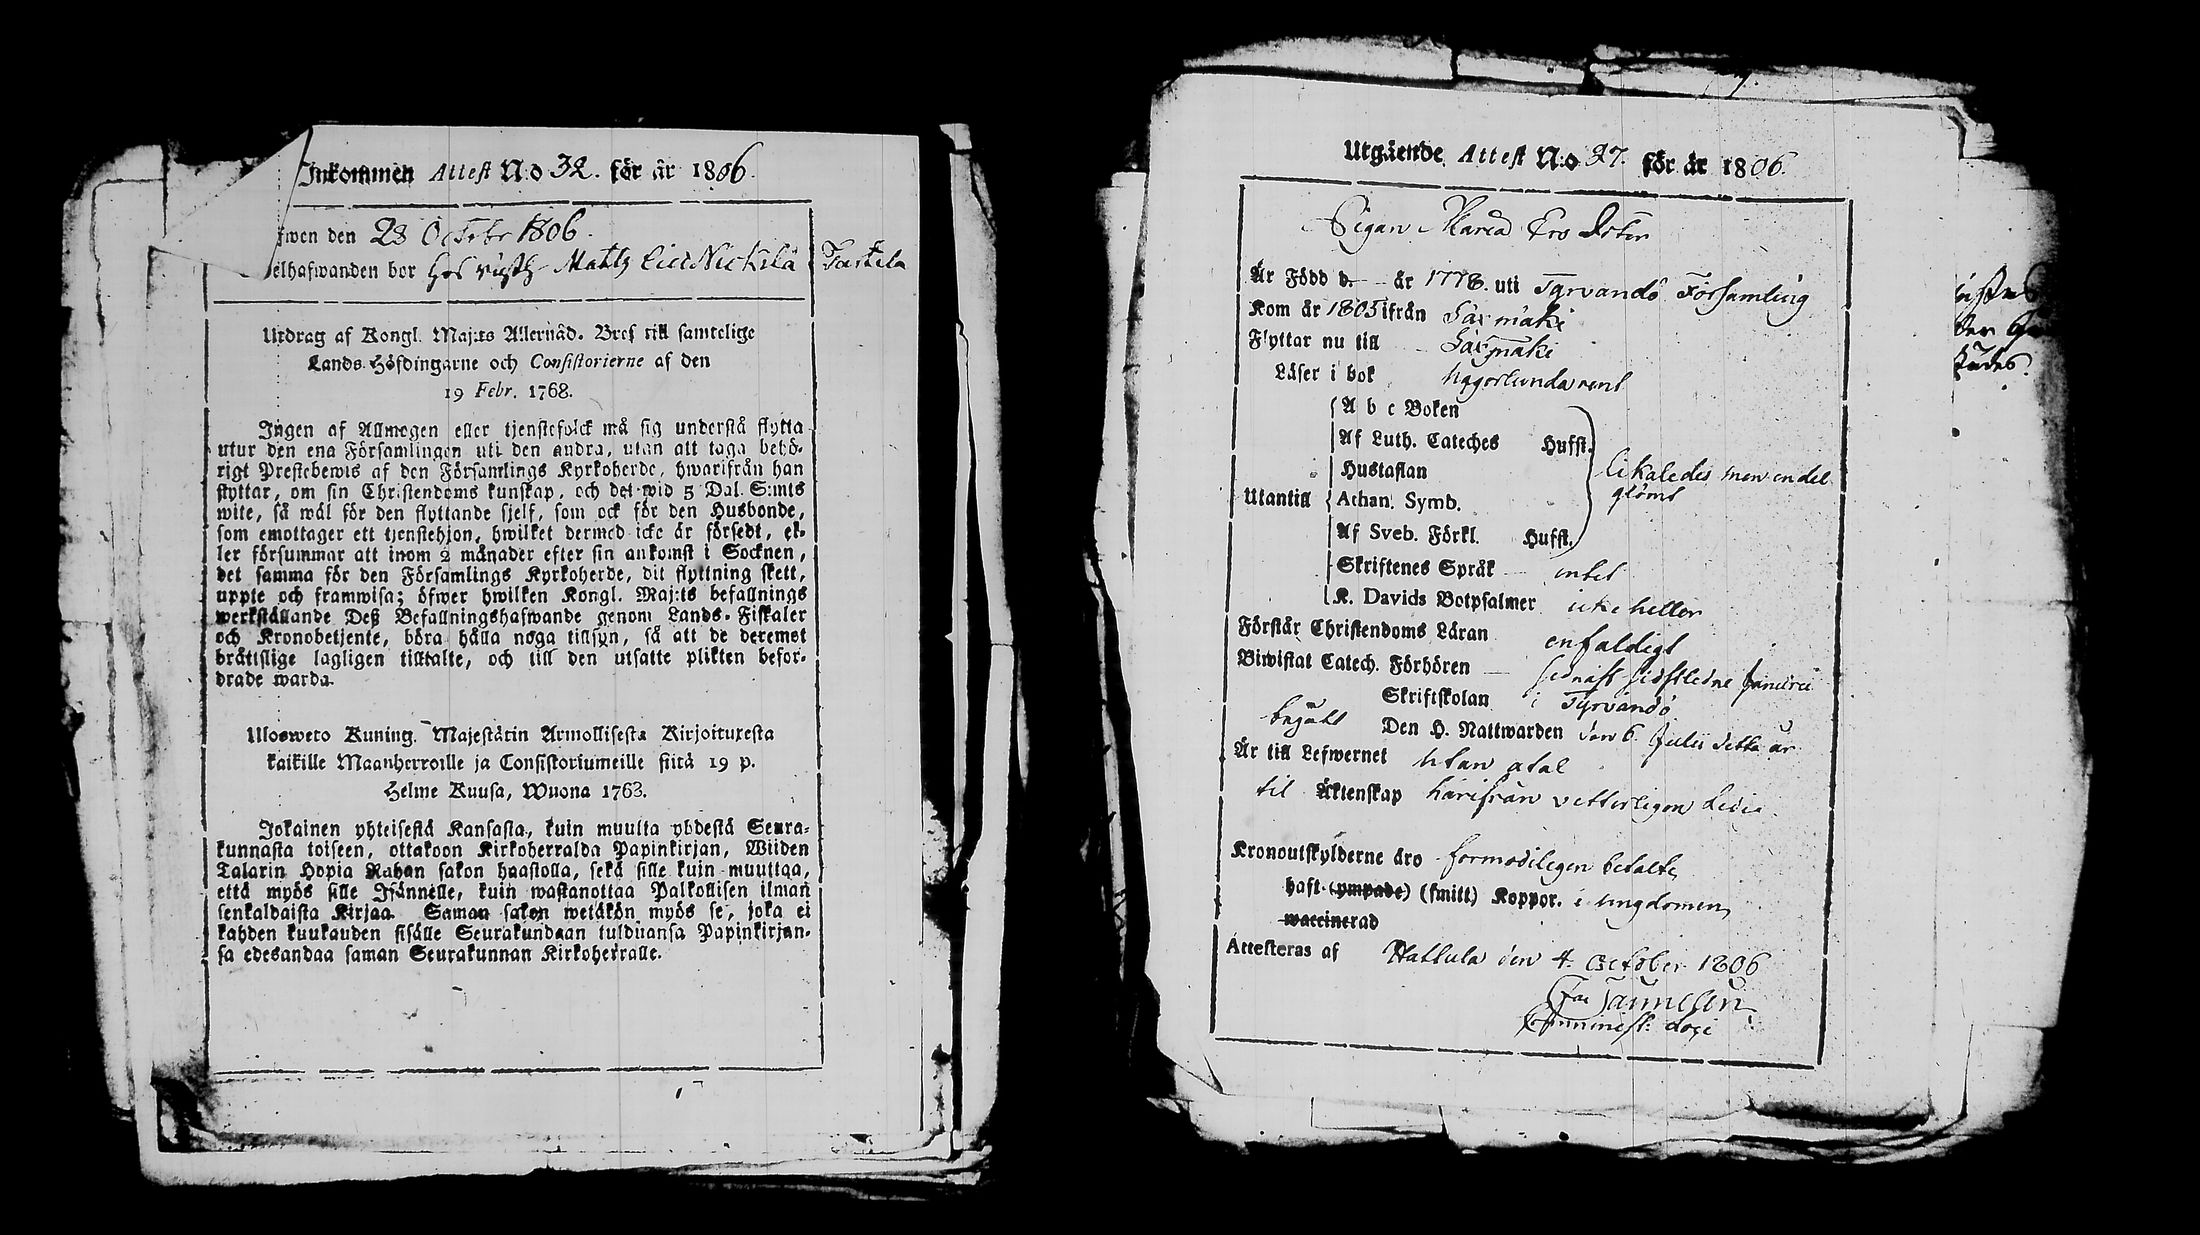 Inkommen Attest N:o 32. för år 1806.
fwen den 28 Octobr 1806.
elhafwanden bor hos rusth. Matts Nickilä Tarttila
Utdrag af Kongl. Maj:ts Allernåd. Bref till samtelige
Lands-Höfdingarne och Consistorierne af den
19 Febr. 1768.
Ingen af Allmogen eller tjenstefolck må sig understå flytta
utur den ena Församlingen uti den andra, utan att taga behö-
rigt Prestebewis af den Församlings Kyrkoherde, hwarifrån han
flyttar, om sin Christendoms kunskap, och det wid 5 Dal. S:mts
wite, så wäl för den flyttande sjelf, som ock för den Husbonde,
som emottager ett tjenstehjon, hwilket dermed icke är försedt, el-
ler försummar att inom 2 månader efter sin ankomst i Socknen,
det samma för den Församlings Kyrkoherde, dit flyttning skett,
uppte och framwisa; öfwer hwilken Kongl. Maj:ts befallnings
werkställande Deß Befallningshafwande genom Lands-Fiskaler
och Kronobetjente, böra hålla noga tillsyn, så att de deremot
bråttslige lagligen tilltalte, och till den utsatte plikten befor-
drade warda.
Ulosweto Kuning. Majestätin Armollisesta Kirjoituxesta
kaikille Maanherroille ja Consistoriumeille siitä 19 p.
Helme Kuusa, Wuona 1763.
Jokainen yhteisestä Kansasta, kuin muutta yhdestä Seura-
kunnasta toiseen, ottakoon Kirkoherralda Papinkirjan, Wiiden
Talarin Hopia Rahan sakon haastolla, sekä sille kuin muuttaa,
että myös sille Isännelle, kuin wastanottaa Palkollisen ilman
senkaldaista Kirjaa. Saman sakon wetäkön myös se, joka ei
kahden kuukauden sisälle Seurakundaan tulduansa Papinkirjan-
sa edesandaa saman Seurakunnan Kirkoherralle.
Utgående Attest N:o 27. för år 1806.
Pigan Maria Ers Dotter
Är Född d. – år 1778. uti Tyrvändö Församling
Kom år 1805 ifrån Säxmäki
Flyttar nu till Säxmäki
Läser i bok någorlunda rent
A b c Boken
Af Luth. Cateches Hufst.
Hustaflan
likaledes men en del
glömt
Utantill Athan. Symb.
Af Sveb. Förkl. Hufst.
Skriftenes Språk intet
K. Davids Botpsalmer icke heller
Förstår Christendoms Läran enfaldigt
Biwistat Catech. Förhören sednast sidstledne Januarii
Skriftskolan i Tyrvändö
begått Den H. Nattwarden den 6. Julii detta år
Är till Lefwernet utan atal
til Äktenskap härifrån vetterligen Ledig
Kronoutskylderne äro formodeligen betalte
haft (ympade) (smitt) Koppor. i ungdomen
waccinerad
Attesteras af Hattula den 4. October 1806